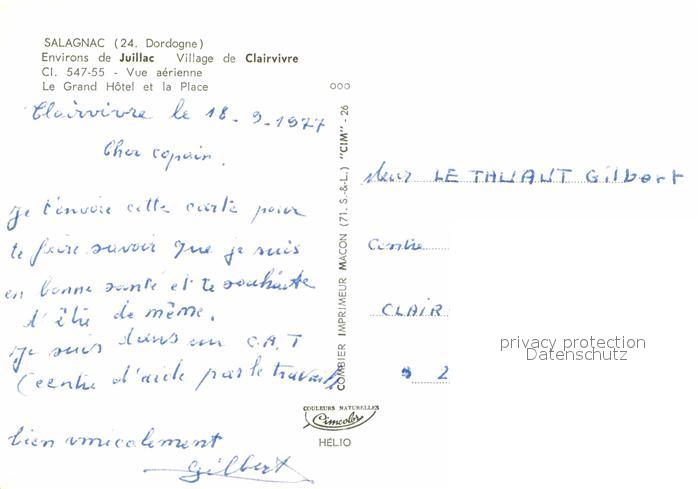 SALAGNAC (24. Dordogne)
Environs de Juillac Village de Clairvivre
Cl. 547-55 - Vue aérienne
Le Grand Hôtel et la Place
Clairvivre le 18-9-1977
Cher copain.
je t'envoie cette carte pour
te faire savoir que je suis
en bonne santé et te souhaite
d'être de même.
je suis dans un C.A.T
(centre d'aide par le travail)
bien amicalement
Gilbert
COMBIER IMPRIMEUR MACON (71. S.-&-L.) "CIM" - 26
COULEURS NATURELLES
Cimcolor
HÉLIO
LE THUAUT Gilbert
Centre
CLAIR
2
privacy protection
Datenschutz